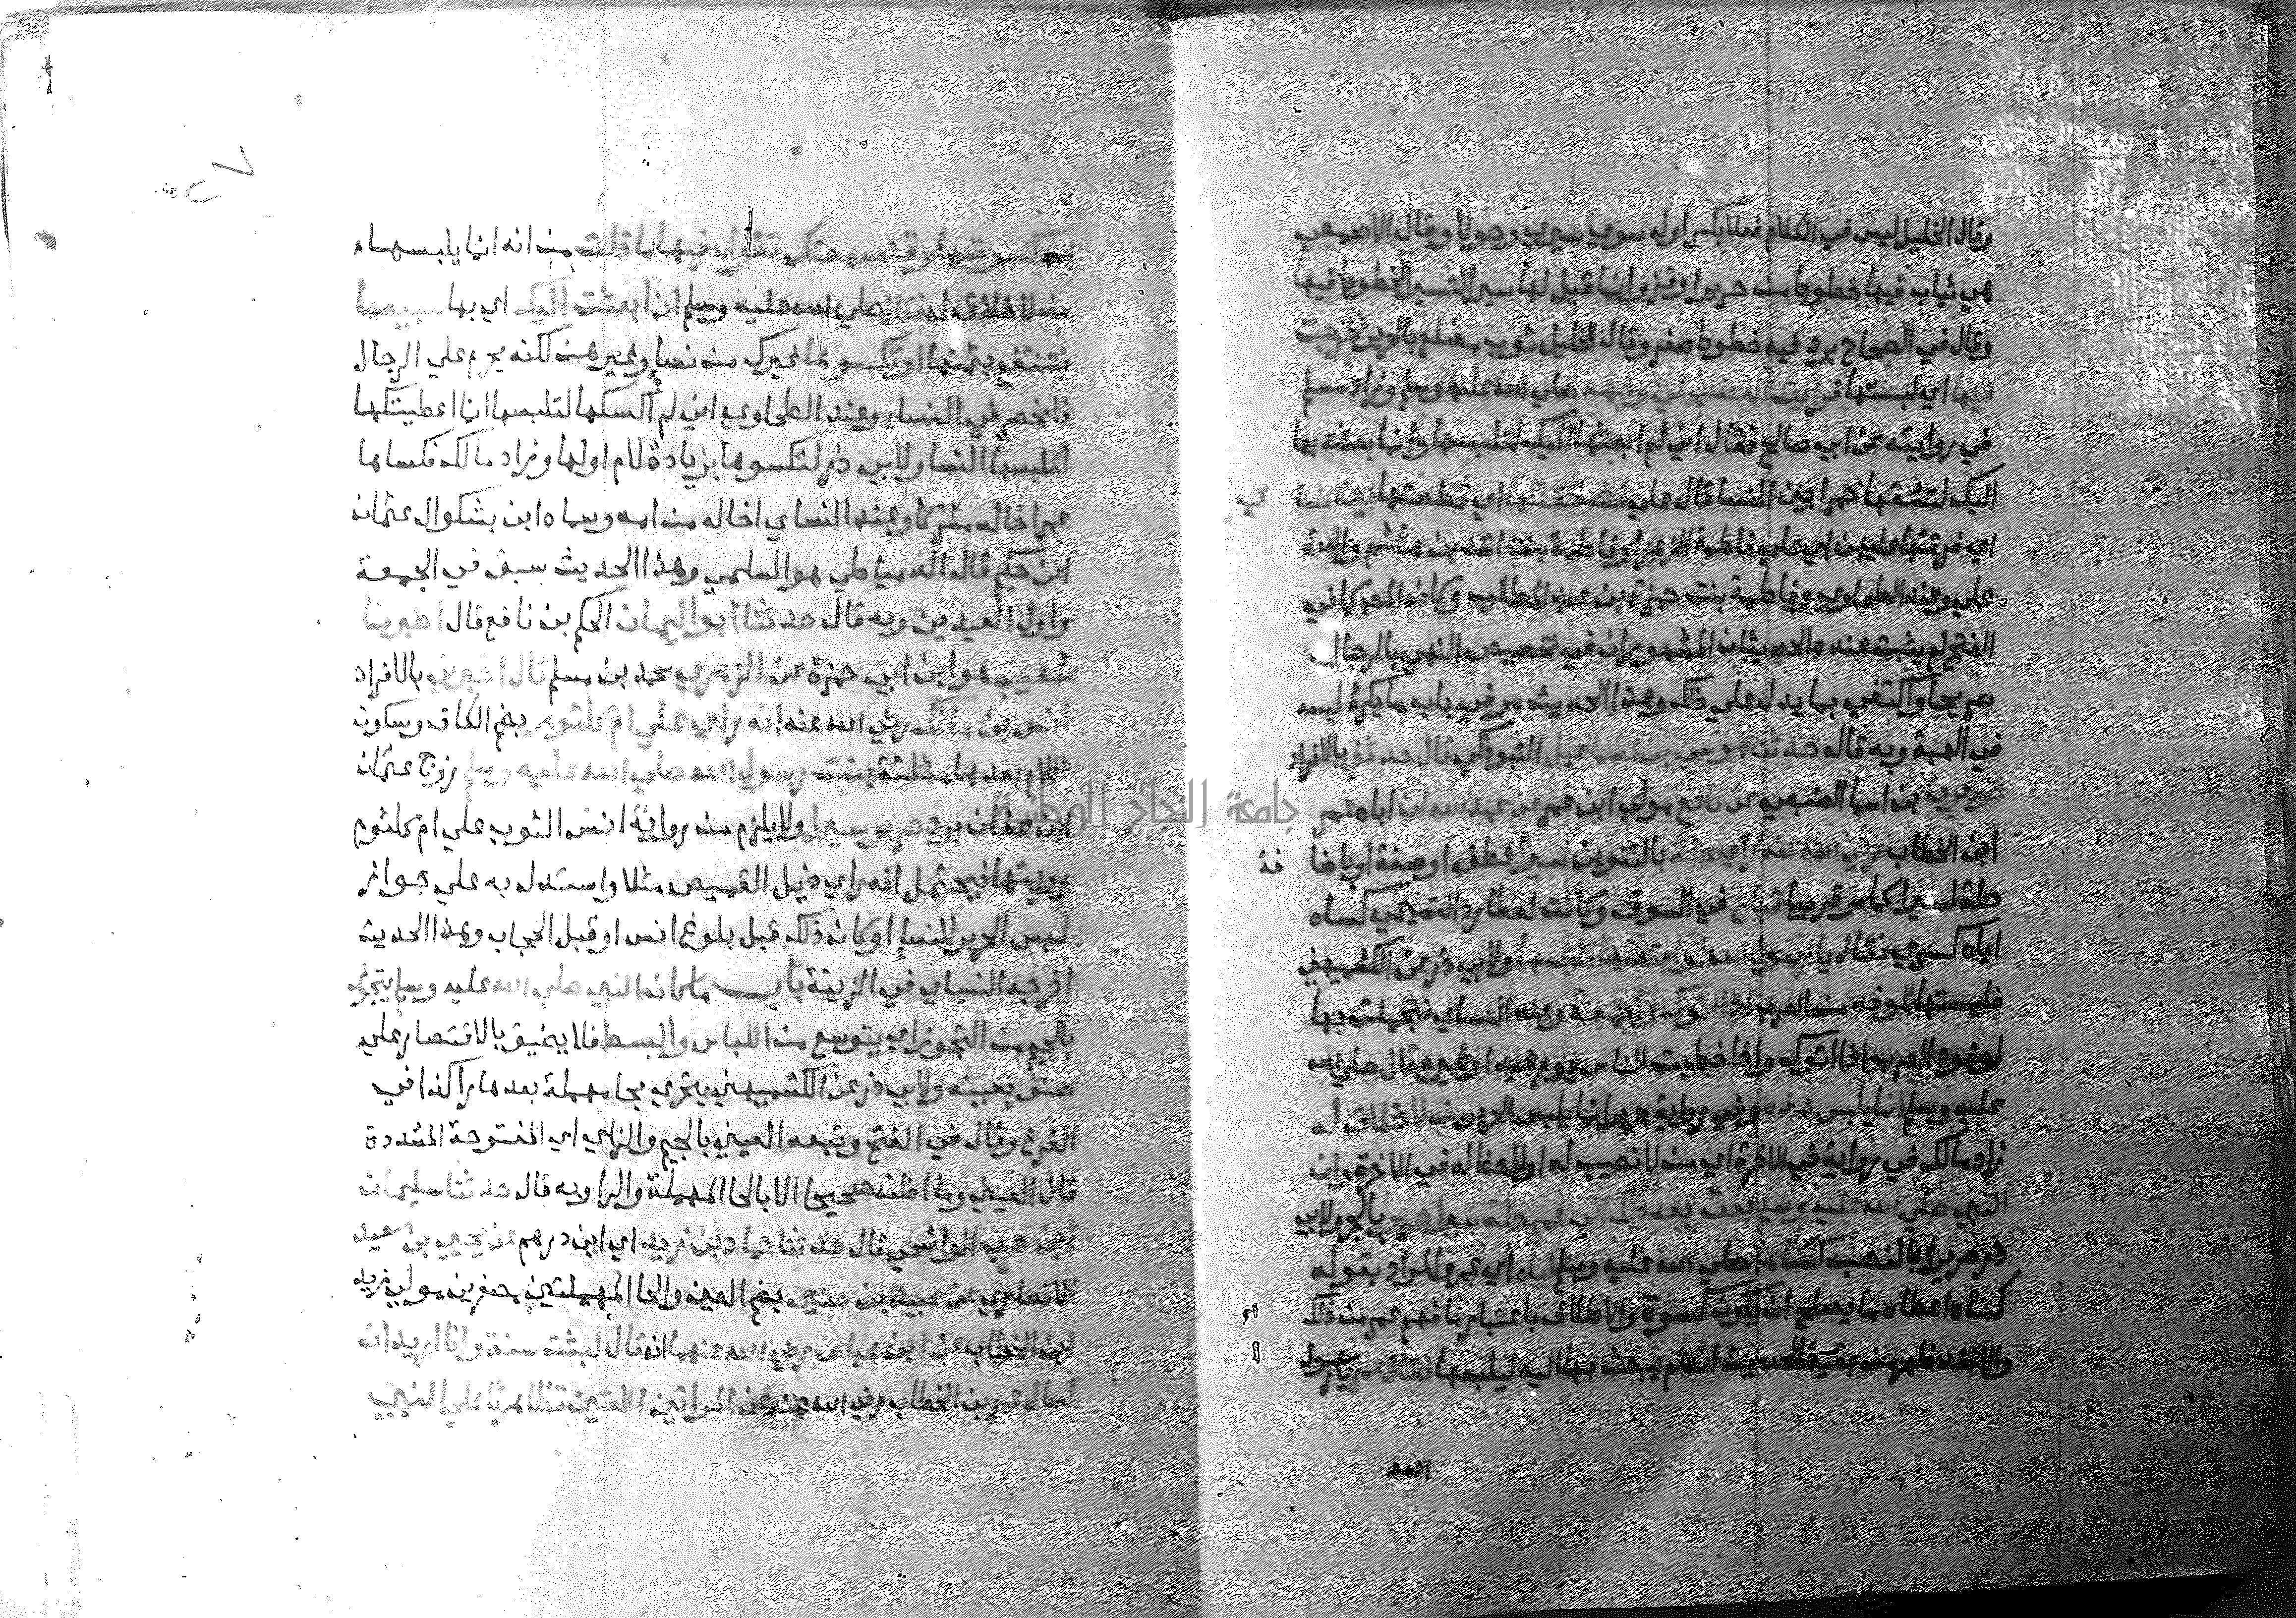 وقال الخليل ليس في الكلام فعلا بكسر اوله سوي سيري وحولا وقال الاصمعي
هي ثياب فيها خطوط من حرير اوقز وانما قيل لها سير التسير الخطوط فيها
وقال في الصحاح برد فيه خطوط صفر وقال الخليل ثوب مضلع بالحرير فخرجت
فيها اي لبستها فرايت الغضب في وجهه صلي الله عليه وسلم وزاد مسلم
في روايته عن ابي صالح فقال اني لم ابعثها اليك لتلبسها وانما بعثت بها
اليك لتشقها خمرا بين النسا قال علي فشققتها اي قطعتها بين نسا ي
اي فرقتها عليهن اي علي فاطمة الزهرا وفاطمة بنت اسد بن هاشم والدة
علي وعند الطحاوي وفاطمة بنت حمزة بن عبد المطلب وكانه المص كما في
الفتح لم يثبت عنده الحديثان المشهوران في تخصيص النهي بالرجال
صريحا واكتفي بما يدل علي ذلك وهذا الحديث مر في باب ما يكره لبسه
في الهبة وبه قال حدثنا موسي بن اسماعيل التبوذكي قال حدثني بالافراد
جويرية بن اسما الضبعي عن نافع مولي ابن عمر عن عبد الله ان اباه عمر
ابن الخطاب رضي الله عنه راي حلة بالتنوين سيرا عطف او صفة او باضا فة
حلة لسيرا كما مر قريبا تباع في السوق وكانت لعطارد التميمي كساه
اياه كسري فقال يا رسول الله لو ابتعتها تلبسها ولابي ذر عن الكشميهني
فلبستها للوفد من العرب اذا اتوك والجمعة وعند النساي فتجملت بها
لوفود العرب اذا اتوك واذا خطبت الناس يوم عيد او غيره قال صلي الله
عليه وسلم انما يلبس هذه وفي رواية جرير انما يلبس الحرير من لا خلاق له
زاد مالك في رواية في الاخرة اي من لا نصيب له او لا حظ له في الاخرة وان
النبي صلي الله عليه وسلم بعث بعد ذلك الي عمر حلة سيرا حرير بالجر ولابي
ذر حريرا بالنصب كساها صلي الله عليه وسلم اياه اي عمر والمراد بقوله
كساه اعطاه ما يصلح ان يكون كسوة والاطلاق باعتبار ما فهم عمر من ذلك
والا فقد ظهر من بقية الحديث انه لم يبعث بها اليه ليلبسها فقال عمر يا رسول
الله
كسوتنيها وقد سمعتك تقول فيها ما قلت من انه انما يلبسها
من لا خلاق له فقال صلي الله عليه وسلم انما بعثت اليك اي بها لتبيعها
فتنتفع بثمنها او تكسوها غيرك من نسا وغيرهن لكنه يحرم علي الرجال
فانحصر في النساء وعند الطحاوي اني لم اكسكها لتلبسها انما اعطيتكها
لتلبسها النسا ولابي ذر لتكسوها بزيادة لام اولها وزاد مالك فكساها
عمر اخاله مشركا وعند النساي اخا له من امه وسماه ابن بشكوال عثمان
ابن حكيم قال الدمياطي هو السلمي وهذا الحديث سبق في الجمعة
واول العيدين وبه قال حدثنا ابو اليمان الحكم بن نافع قال اخبرنا
شعيب هو ابن ابي حمزة عن الزهري محمد بن مسلم قال اخبرني بالافراد
انس بن مالك رضي الله عنه انه راي علي ام كلثوم بضم الكاف وسكون
اللام بعدها مثلثة بنت رسول الله صلي الله عليه وسلم زوج عثمان
بن عفان برد حرير سيرا ولا يلزم من رواية انس الثوب علي ام كلثوم
رويتها فيحتمل انه راي ذيل القميص مثلا واستدل به علي جواز
لبس الحرير للنسا او كان ذلك قبل بلوغ انس او قبل الحجاب وهذا الحديث
اخرجه النساي في الزينة باب ما كان النبي صلي الله عليه وسلم يتجوز
بالجيم من التجوز اي يتوسع من اللباس والبسط فلا يضيق بالاقتصار علي
صنف بعينه ولابي ذر عن الكشميهني يتحري بحا مهملة بعدها را كذا في
الفرع وقال في الفتح وتبعه العيني بالجيم والزاي اي المفتوحة المشددة
قال العيني وما اظنه صحيحا الا بالحا المهملة والرا وبه قال حدثنا سليمان
ابن حرب الواشحي قال حدثنا حماد بن زيد اي ابن درهم عن يحيي بن سعيد
الانصاري عن عبيد بن حنين بضم العين والحا المهملتين مصغرين مولي زيد
ابن الخطاب عن ابن عباس رضي الله عنهما انه قال لبثت سنة وانا اريد ان
اسال عمر بن الخطاب رضي الله عنه عن المراتين اللتين تظاهرتا علي النبي
جامعة النجاح الوطنية